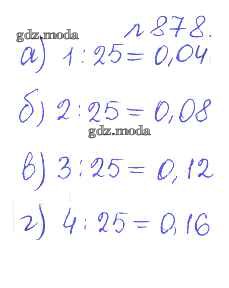 № 878.
gdz.moda
а) 1 : 25 = 0,04
б) 2 : 25 = 0,08
gdz.moda
в) 3 : 25 = 0,12
г) 4 : 25 = 0,16